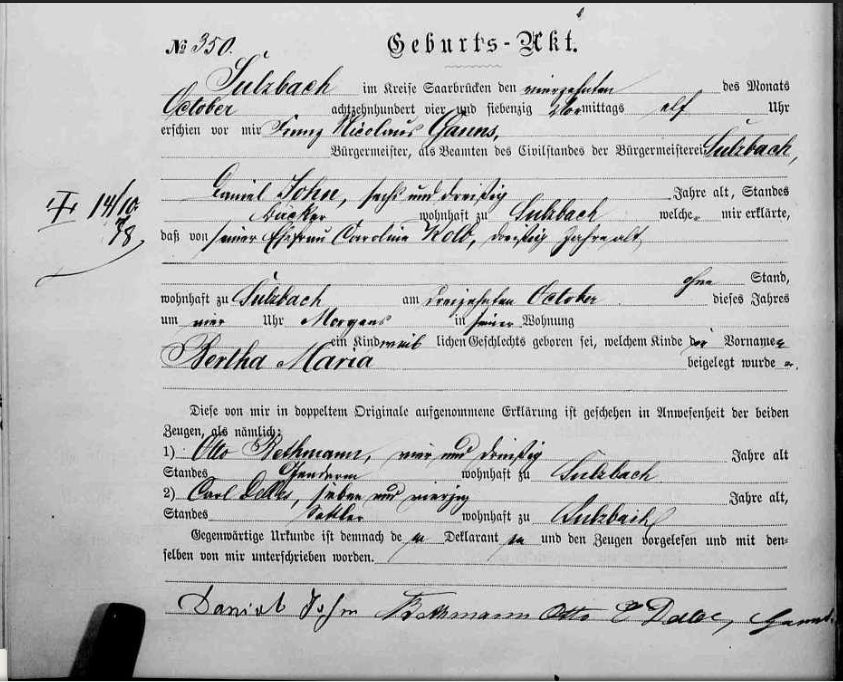 № 350. Geburts-Akt.
Sulzbach im Kreise Saarbrücken den vierzehnten des Monats
October achtzehnhundert vier und siebenzig Vormittags elf Uhr
erschien vor mir Franz Nicolaus Ganns,
Bürgermeister, als Beamten des Civilstandes der Bürgermeisterei Sulzbach,
Daniel John, sechs und dreißig Jahre alt, Standes
14/10
78
Bäcker wohnhaft zu Sulzbach welcher mir erklärte,
daß von seiner Ehefrau Caroline Kolb, dreißig Jahre alt,
ohne Stand,
wohnhaft zu Sulzbach am dreizehnten October dieses Jahres
um vier Uhr Morgens in seiner Wohnung
ein Kind weib lichen Geschlechts geboren sei, welchem Kinde die Vornamen
Bertha Maria beigelegt wurden.
Diese von mir in doppeltem Originale aufgenommene Erklärung ist geschehen in Anwesenheit der beiden
Zeugen, als nämlich:
1) Otto Rethmann, vier und dreißig Jahre alt
Standes Gendarm wohnhaft zu Sulzbach
2) Carl sieben und vierzig Jahre alt,
Standes Sattler wohnhaft zu Sulzbach
Gegenwärtige Urkunde ist demnach de m Deklarant en und den Zeugen vorgelesen und mit den-
selben von mir unterschrieben worden.
Daniel John Rethmann Otto C Ganns.